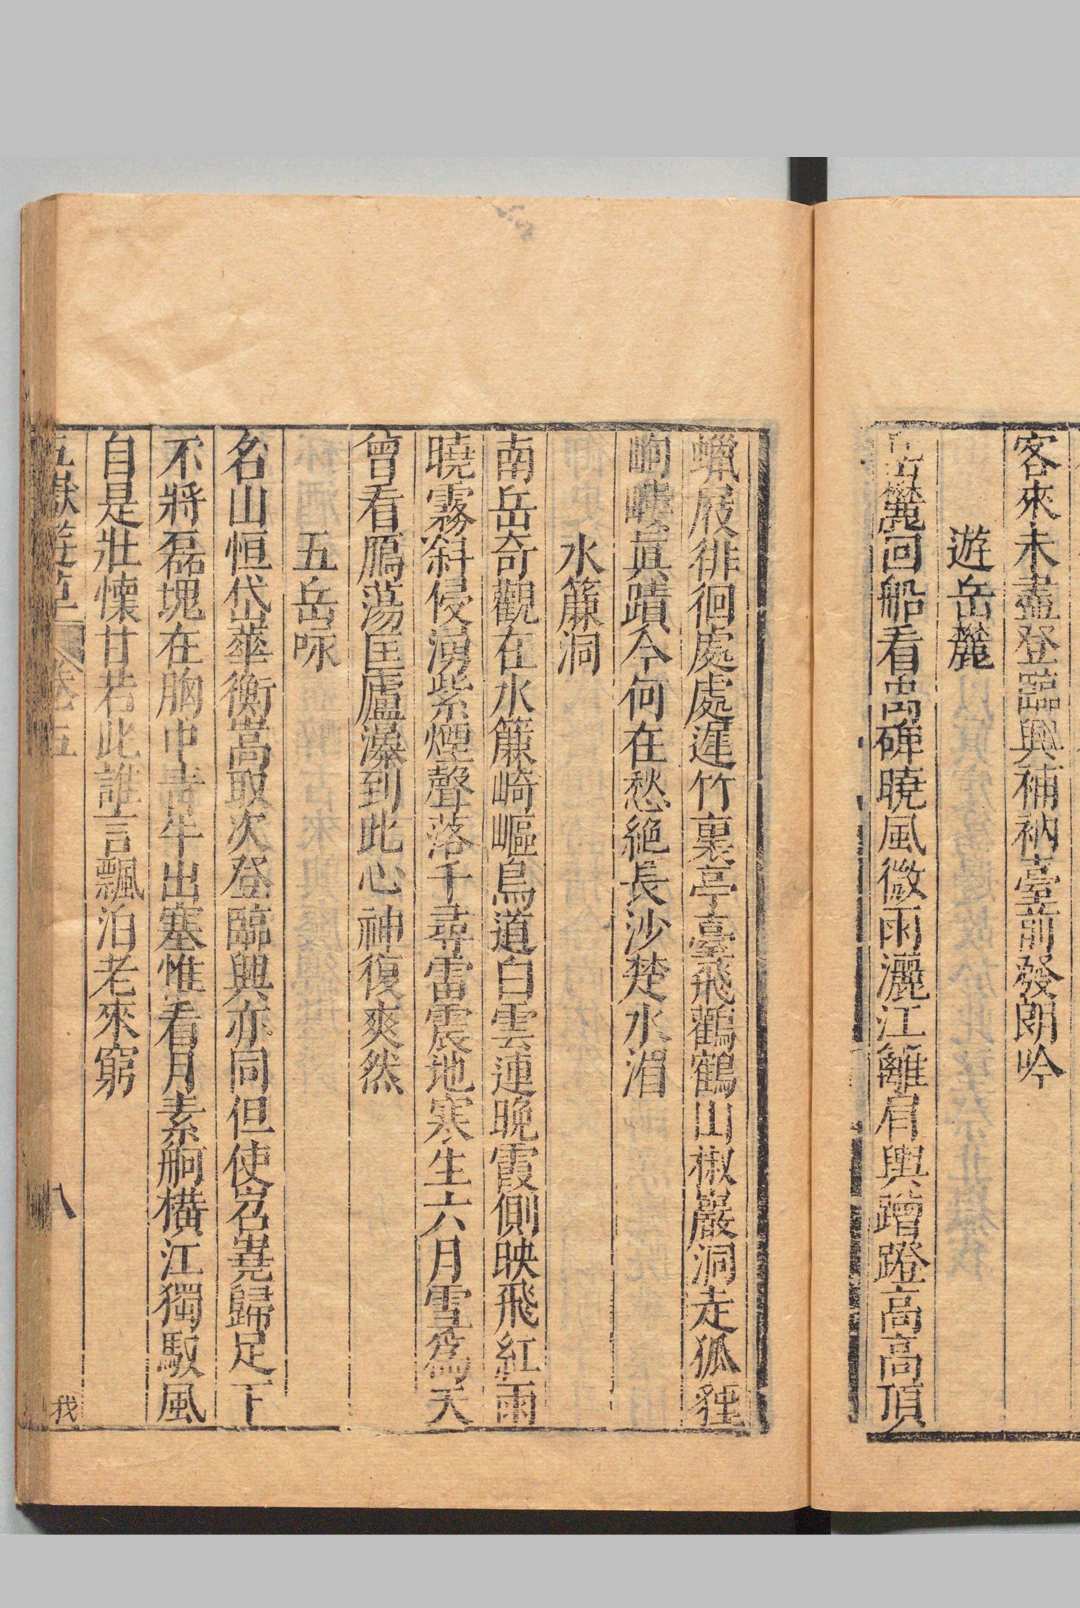 客來未盡登臨興補衲臺前發朗吟
遊岳麓
岳麓回船看禹碑曉風微雨灑江籬肩輿蹭蹬高高頂
蠟屐徘徊處處遲竹裏亭臺飛鸛鶴山椒巖洞走狐貍
岣嶁眞蹟今何在愁絕長沙楚水湄
水簾洞
南岳奇觀在水簾崎嶇鳥道白雲連晚霞側映飛紅雨
曉霧斜侵湧紫煙聲落千尋雷震地寒生六月雪爲天
曾看鴈蕩匡廬瀑到此心神復爽然
五岳咏
名山恒岱華衡嵩取次登臨興亦同但使岧嶤歸足下
不將磊塊在胸中靑牛出塞惟看月素舸橫江獨馭風
自是壯懷甘若此誰言飄泊老來窮
五嶽遊草 卷五 八 我